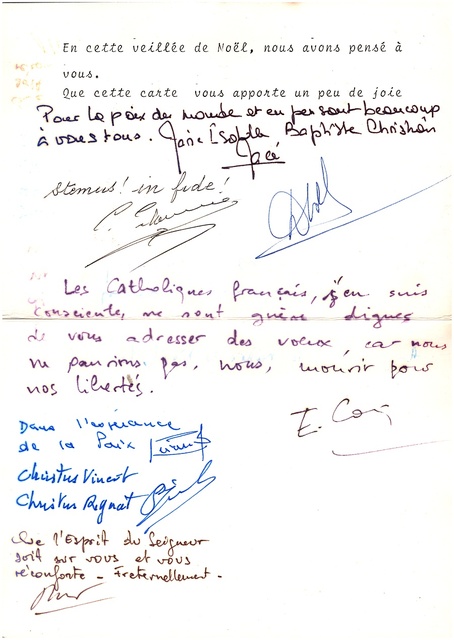 En cette veillée de Noël, nous avons pensé à
vous.
Que cette carte vous apporte un peu de joie
Pour la paix du monde et en pensant beaucoup
à vous tous. Marie Isabelle Baptiste Christian
Stemus! in fide!
Les Catholiques français, j'en suis
consciente, ne sont guère dignes
de vous adresser des voeux, car nous
ne saurions pas, nous, mourir pour
nos libertés.
Dans l'espérance
de la Paix
E.
Christus Vincit
Christus Regnat
Que l'Esprit du Seigneur
soit sur vous et vous
réconforte - Fraternellement -